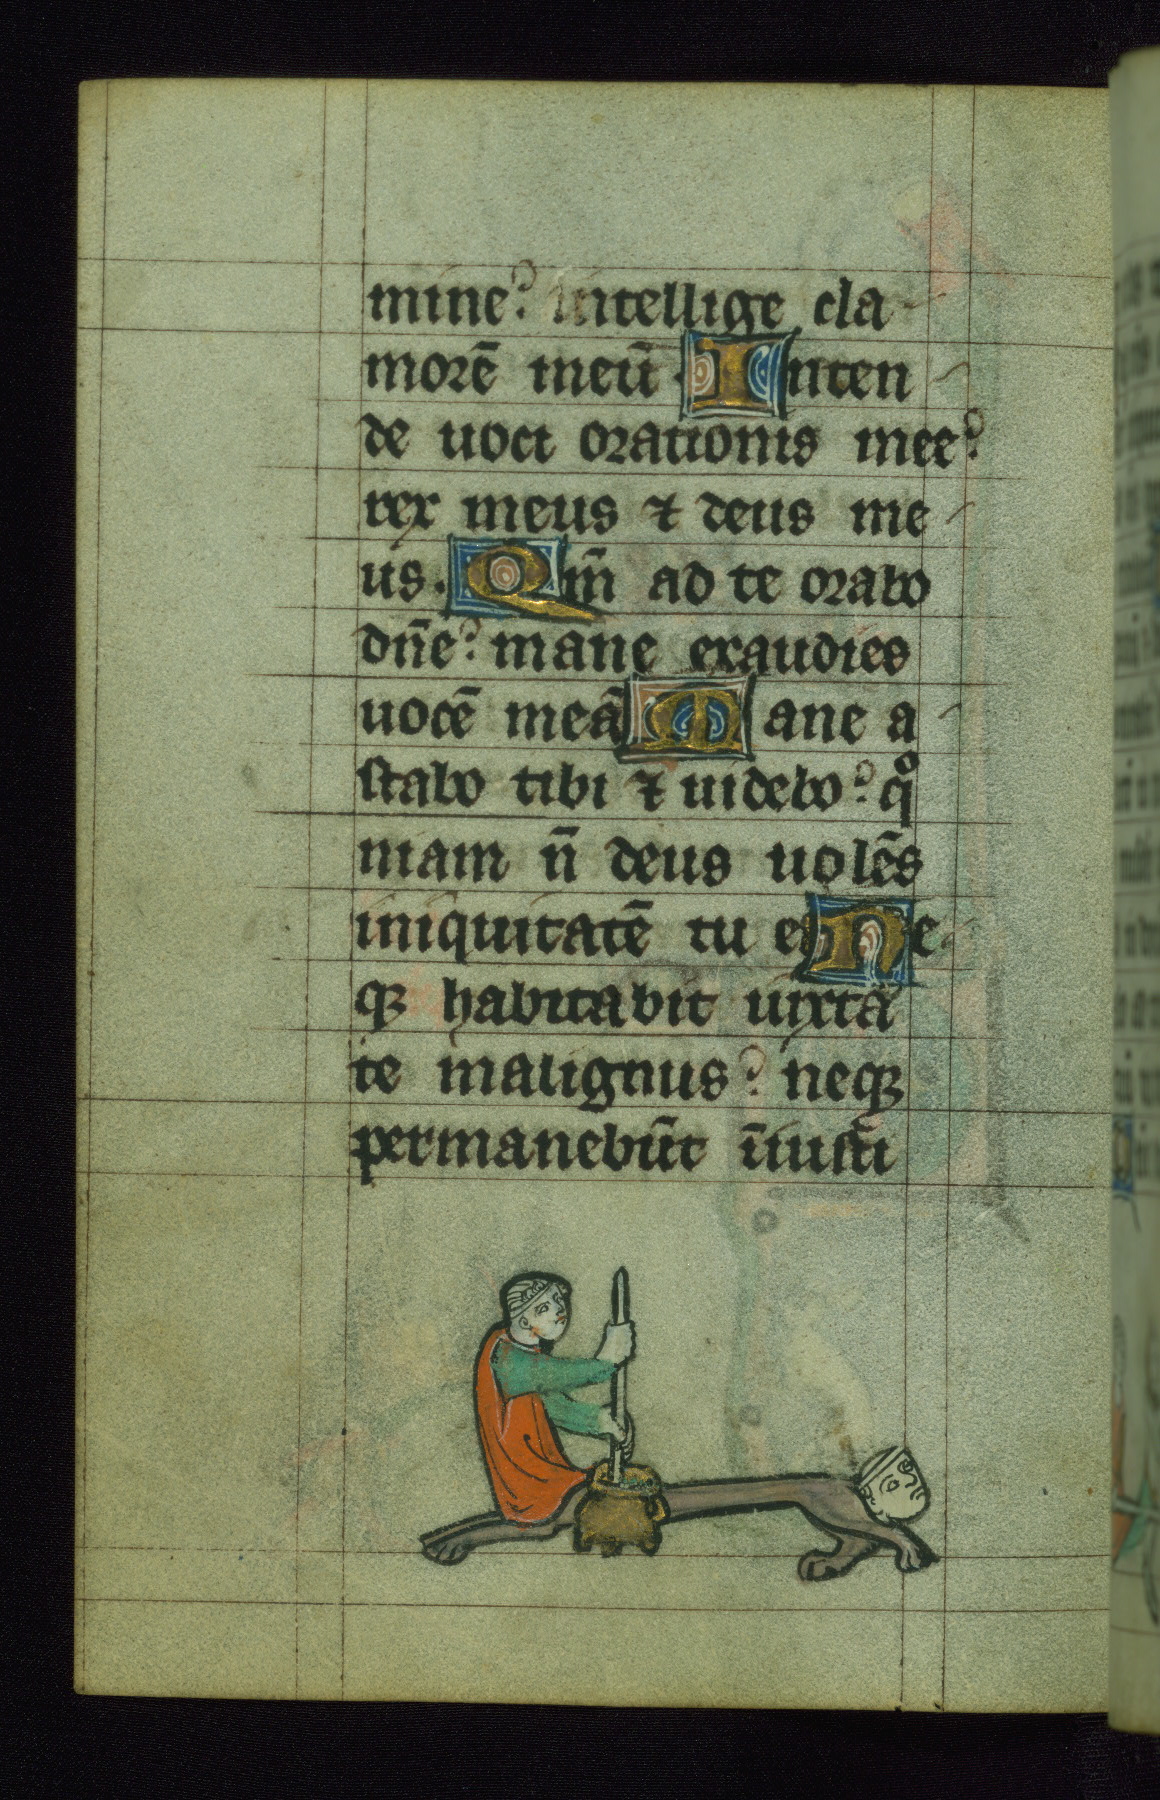 mine? intellige cla
morē meū. Inten
de uoci orationis mee?
rex meus ⁊ deus me
us. Qm̄ ad te orabo
dn̄e? mane exaudies
uocē meā Mane a
stabo tibi ⁊ uidebo? qͦ
niam n̄ deus uolēs
iniquitatē tu es Ne
qꝫ habitabit iuxta
te malignus? neqꝫ
permanebūt īiusti